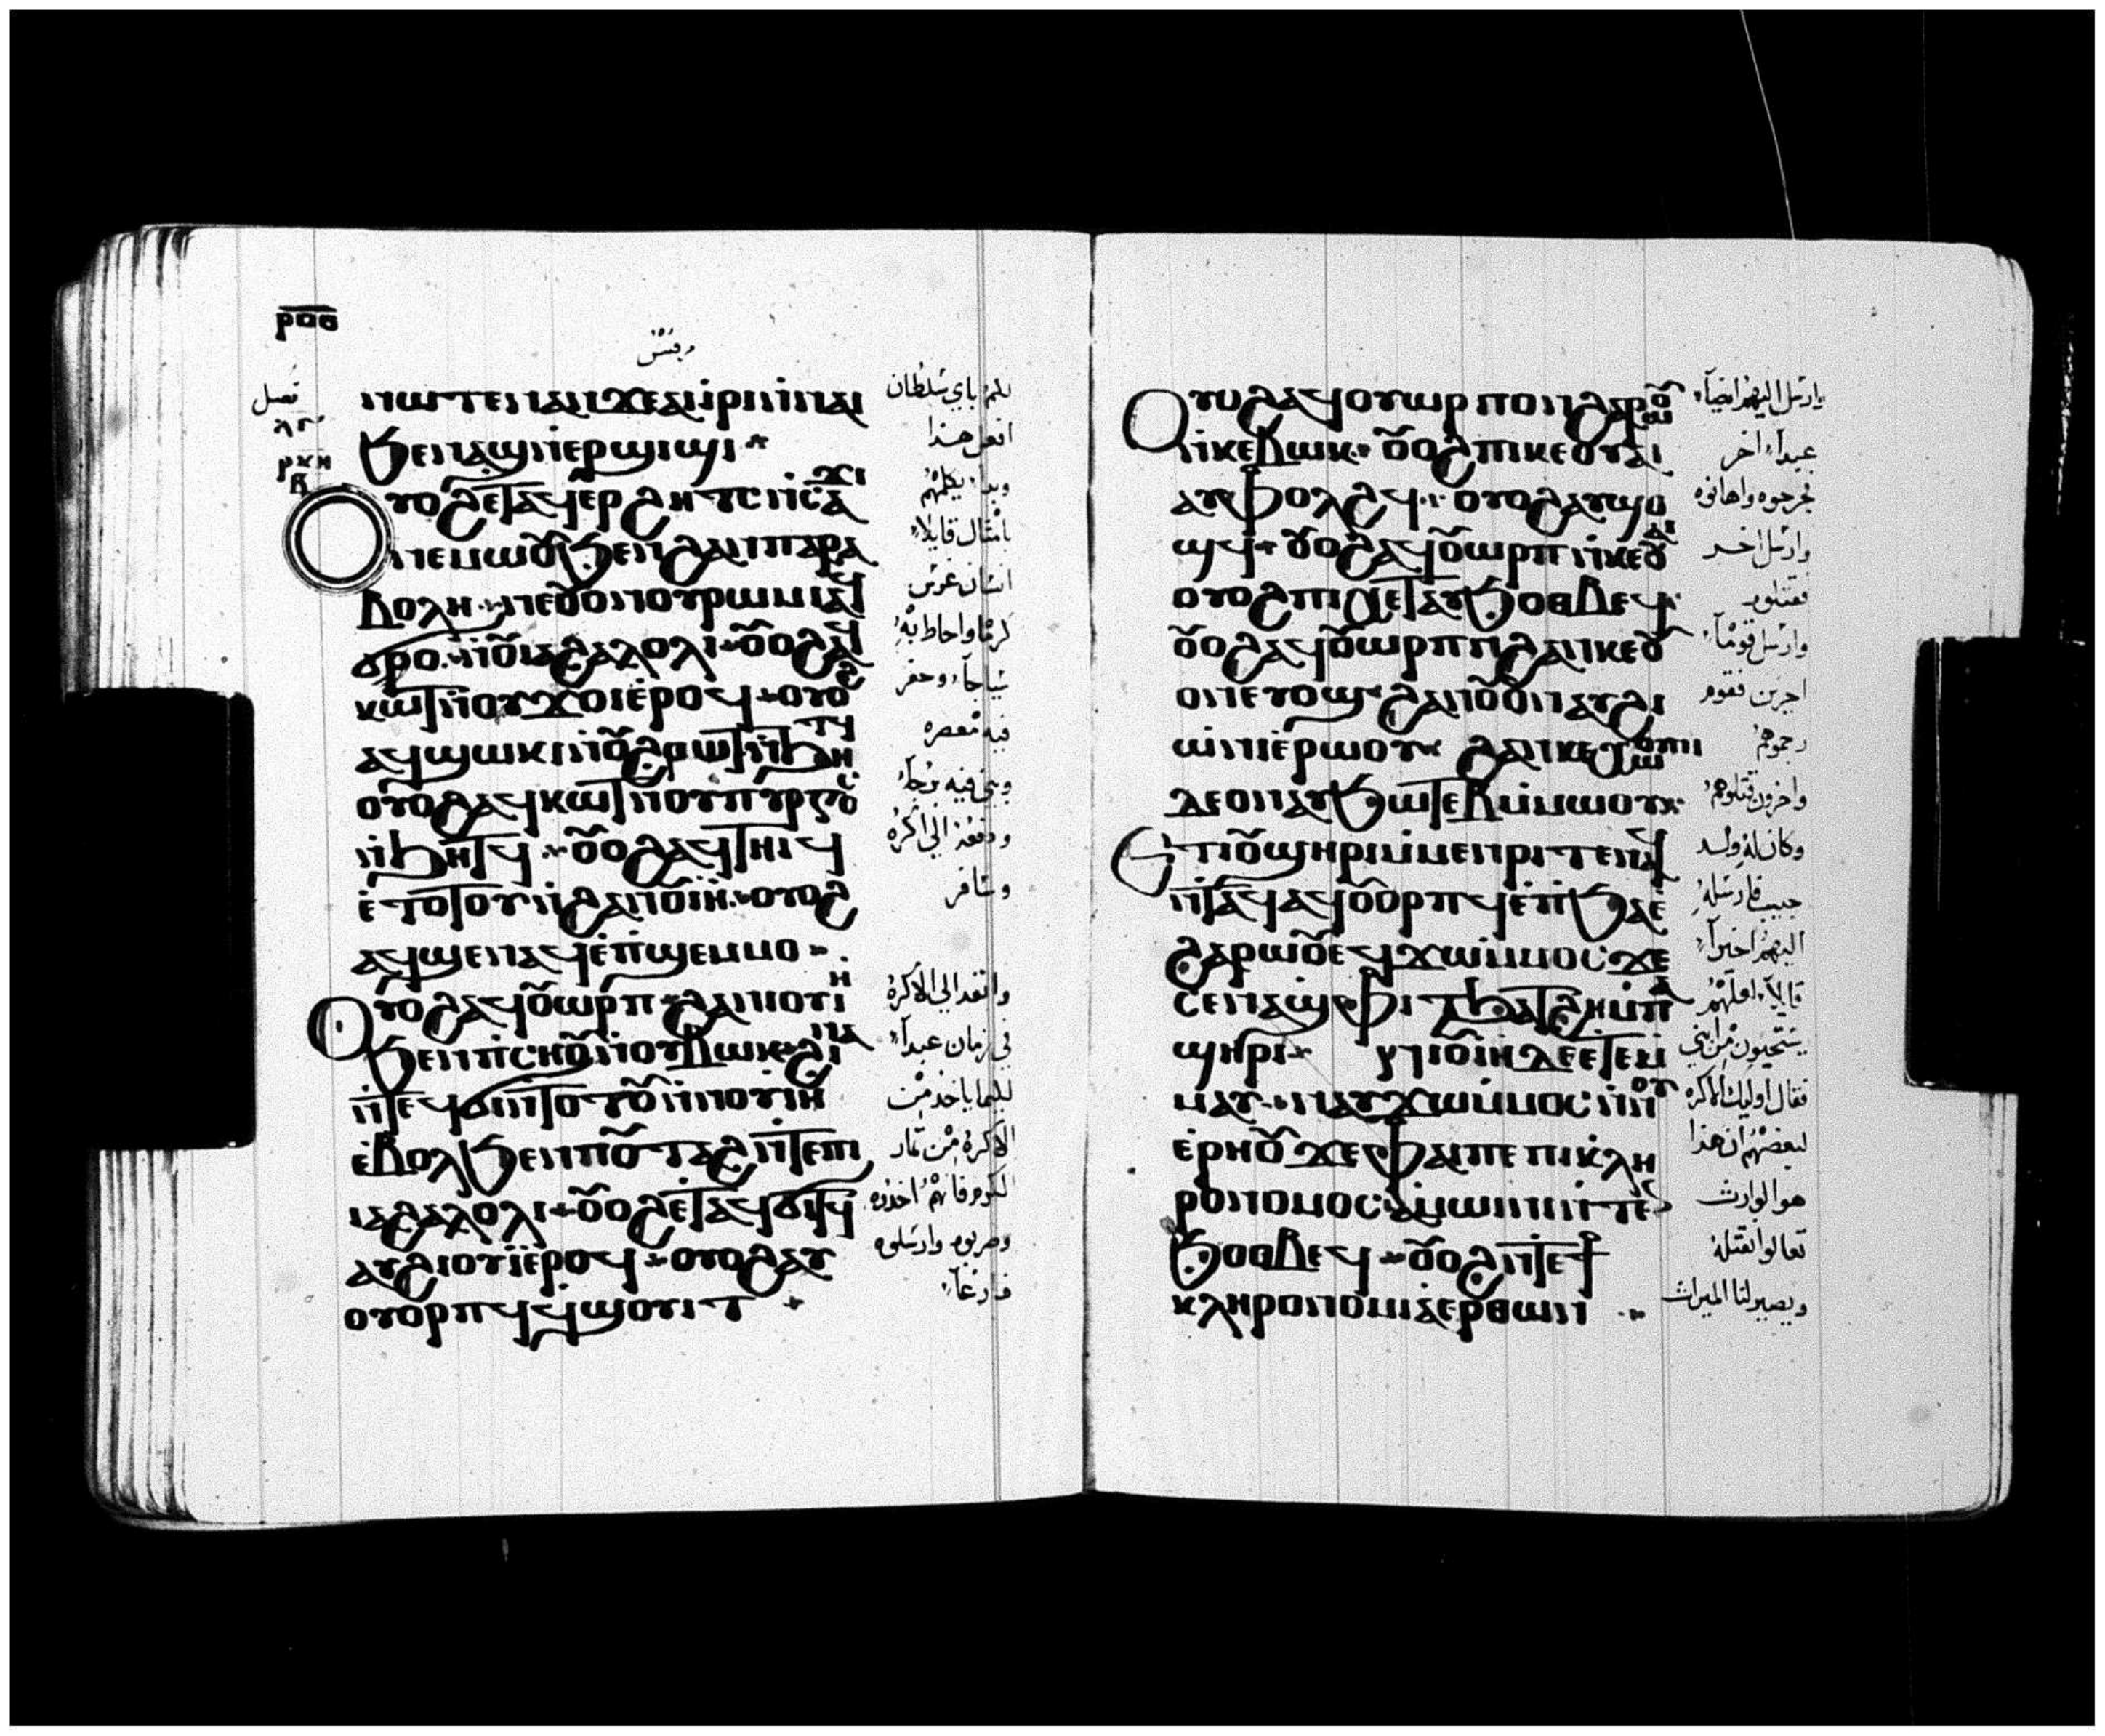 ⲣⲟⲑ
ⲙⲣ⻗
مرقس
ⲛⲱⲧⲉⲛⲁⲛϫⲉⲁⲓⲓⲣⲓⲛⲛⲁⲓ
ϧⲉⲛⲁϣⲛⲉⲣϣⲓϣⲓ
ⲟⲩⲟϩⲉⲧⲁϥⲉⲣϩⲏⲧⲥⲛⲥⲁϫⲓ
ⲛⲉⲙⲱⲟⲩϧⲉⲛϩⲁⲛⲡⲁⲣⲁ
ⲃⲟⲗⲏ ⲛⲉⲟⲩⲟⲛⲟⲩⲣⲱⲙⲓⲁϥ
ϭⲣⲟ ⲛⲟⲩⲓⲁϩⲁⲗⲟⲗⲓ ⲟⲩⲟϩⲁϥ
ⲕⲱⲧⲛⲟⲩϫⲟⲓⲉⲣⲟϥ ⲟⲩⲟϩ
ⲁϥϣⲱⲕⲛⲟⲩϩⲣⲱⲧⲛϧⲏⲧϥ
ⲟⲩⲟϩⲁϥⲕⲱⲧⲛⲟⲩⲡⲩⲣⲅⲟⲥ
ⲛϧⲏⲧϥ ⲟⲩⲟϩⲁϥⲧⲏⲓϥ
ⲉⲧⲟⲧⲟⲩⲛϩⲁⲛⲟⲩⲓⲏ ⲟⲩⲟϩ
ⲁϥϣⲉⲛⲁϥⲉⲡϣⲉⲙⲙⲟ
ⲟⲩⲟϩⲁϥⲟⲩⲱⲣⲡ ϩⲁⲛⲓⲟⲩⲓⲏ
ϧⲉⲛⲡⲥⲏⲟⲩⲛⲟⲩⲃⲱⲕ ϩⲓⲛⲁ
ⲛⲧⲉϥϭⲓⲛⲧⲟⲧⲟⲩⲛⲛⲓⲟⲩⲓⲏ
ⲉⲃⲟⲗϧⲉⲛⲡⲟⲩⲧⲁϩⲛⲧⲉⲡⲓ
ⲓⲁϩⲁⲗⲟⲗⲓ ⲟⲩⲟϩⲉⲧⲁϥϭⲓⲧϥ
ⲁⲩϩⲓⲟⲩⲓⲉⲣⲟϥ ⲟⲩⲟϩⲁⲩ
ⲟⲩⲟⲣⲡϥϥϣⲟⲩⲓⲧ
فصل
لكم باي سلطان
افعل هذا
وبدا يكلمهم
بامثال قايلا
انسان غرس
كرما واحاط به
سياجا وحفر
فيه معصره
وبنى فيه برجا
ودفعه الي اكره
وسافر
وانفد الي الاكره
في زمان عبدا
لكيما ياخذ من
الاكره من ثمار
الكرم فانهم اخذوه
وضربوه وارسلوه
فارغا
ⲟⲩⲟϩⲁϥⲟⲩⲱⲣⲡⲟⲛϩⲁⲣⲱⲟⲩ
ⲛⲕⲉⲃⲱⲕ ⲟⲩⲟϩⲡⲓⲕⲉⲟⲩⲁⲓ
ⲁⲩⲫⲟⲗϩϥ ⲟⲩⲟϩⲁⲩϣⲟ
ϣϥ ⲟⲩⲟϩⲁϥⲟⲩⲱⲣⲡⲛⲕⲉⲟⲩⲁⲓ
ⲟⲩⲟϩⲡⲓⲭⲉⲧⲁⲩϧⲟⲑⲃⲉϥ
ⲟⲩⲟϩⲁϥⲟⲩⲱⲣⲡⲛϩⲁⲛⲕⲉⲟⲩ
ⲟⲛⲉⲩⲟϣ ϩⲁⲛⲟⲩⲟⲛⲁⲩϩⲓ
ⲱⲛⲓⲉⲣⲱⲟⲩ ϩⲁⲛⲕⲉⲭⲱⲟⲩⲛⲓ
ⲇⲉⲟⲛⲁⲩϧⲱⲧⲉⲃⲙⲙⲱⲟⲩ
ⲉⲧⲓⲟⲩϣⲏⲣⲓⲙⲙⲉⲛⲣⲓⲧⲉⲛⲁϥ
ⲛⲧⲁϥⲁϥⲟⲩⲟⲣⲡϥⲉⲡϧⲁⲉ
ϩⲁⲣⲱⲟⲩⲉϥϫⲱⲙⲙⲟⲥϫⲉ
ⲥⲉⲛⲁϣⲫⲓⲧϧⲁⲧϩⲏⲙⲡⲁ
ϣⲏⲣⲓ ⲛⲓⲟⲩⲓⲏⲇⲉⲉⲧⲉⲙ
ⲙⲁⲩ ⲛⲁⲩϫⲱⲙⲙⲟⲥⲛⲛⲟⲩ
ⲉⲣⲏⲟⲩϫⲉⲫⲁⲓⲡⲉⲡⲓⲕⲗⲏ
ⲣⲟⲛⲟⲙⲟⲥ ⲁⲙⲱⲓⲛⲓⲛⲧⲉⲛ
ϧⲟⲑⲃⲉϥ ⲟⲩⲟϩⲛⲧⲉϯ
ⲕⲗⲏⲣⲟⲛⲟⲙⲓⲁⲉⲣⲑⲱⲛ
وارسل اليهم ايضا
عبدا اخر
فجرحوه واهانوه
وارسل اخر
فقتلوه
وارسل قوما
اخرين فقوم
رجموهم
واخرون قتلوهم
وكان له ولد
حبيب فارسله
اليهم اخيرا
قايلا لعلهم
يستحيون من ابني
فقال اوليك الاكره
لبعضهم ان هذا
هو الوارث
تعالوا نقتله
ويصير لنا الميراث